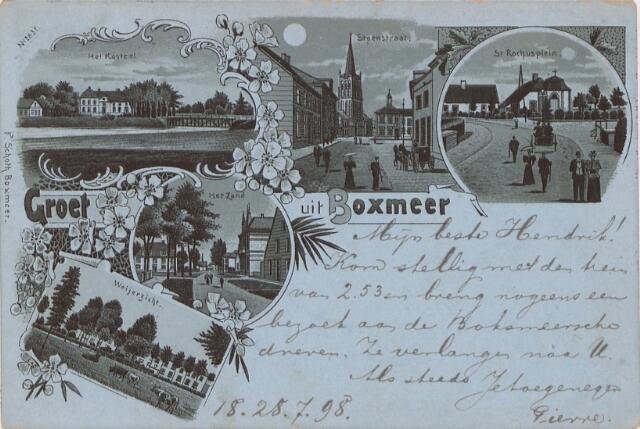 No 1231.
Het Kasteel
Steenstraat.
St Rochusplein.
Pr Scholh, Boxmeer.
Groet uit Boxmeer
Het Zand
Weijerzicht.
Mijn beste Hendrik!
Kom stellig met den trein
van 2.53 en breng nogeens een
bezoek aan de Boksmeersche
dreven. Ze verlangen naa U.
Als steeds Je toegenegen
Pierre.
18. 28.7.98.